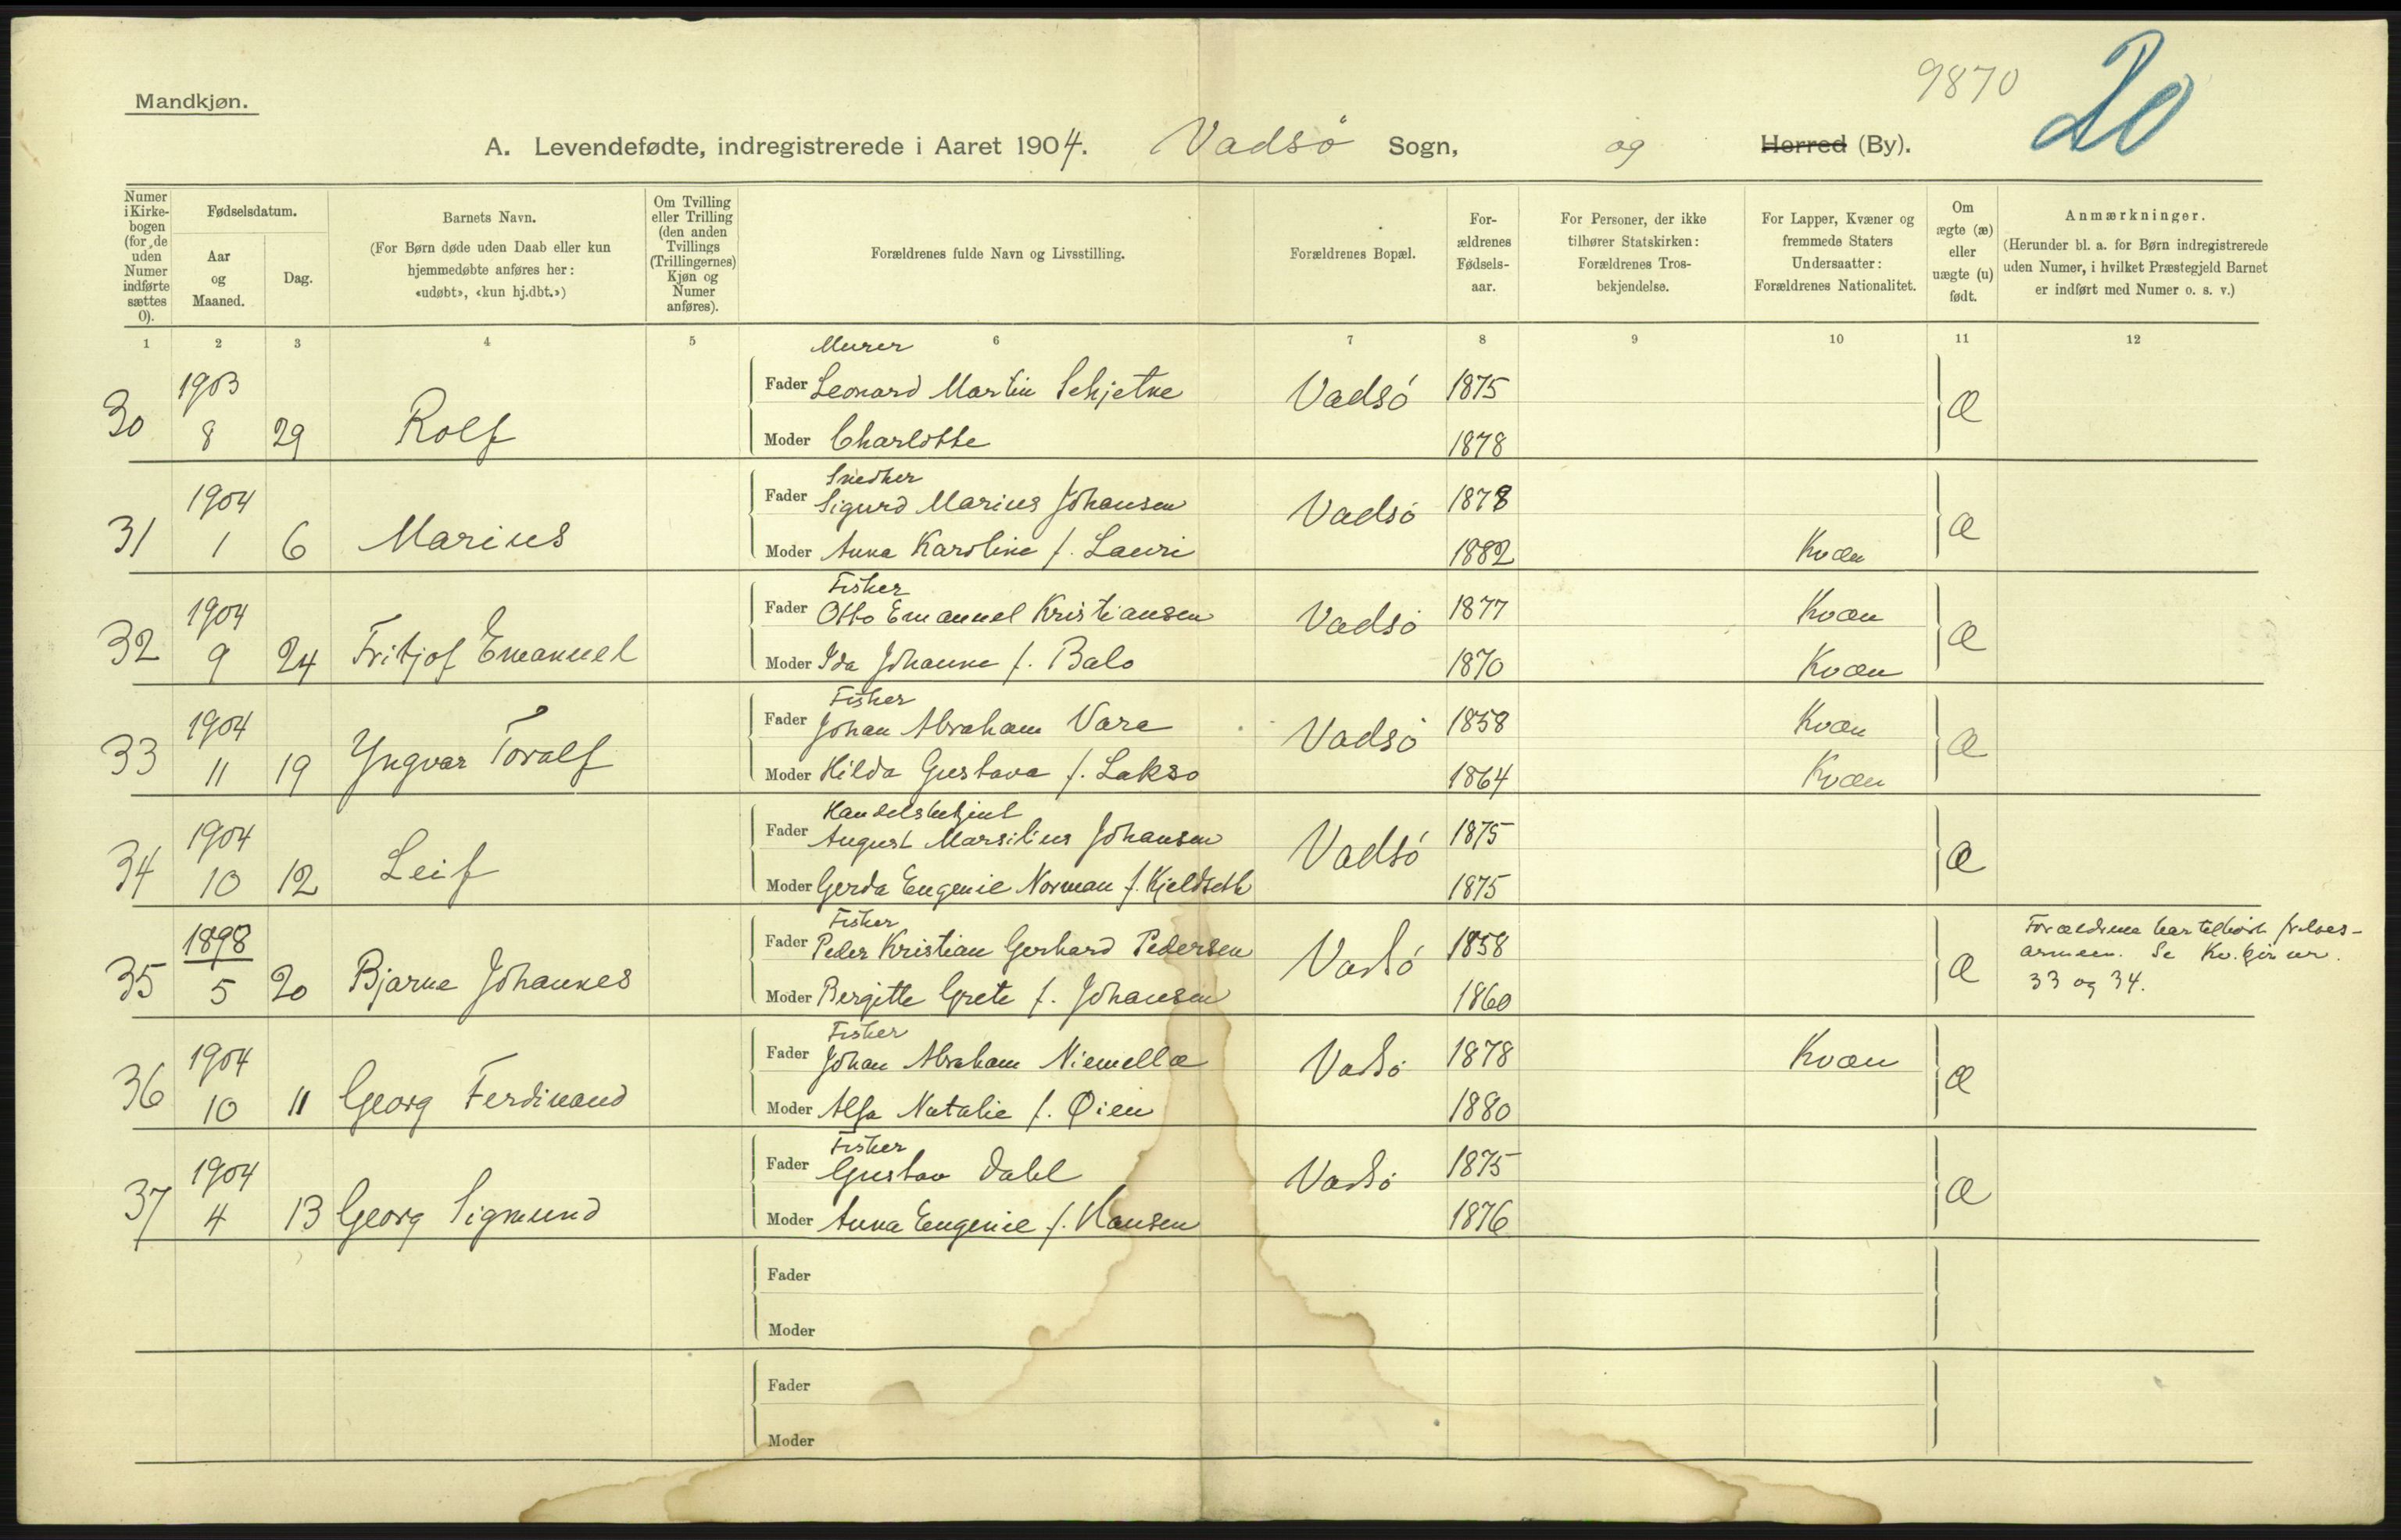 9870
20
Mandkjøn.
A. Levendefødte, indregistrerede i Aaret 1904. Vadsö Sogn, og Herred (By).
Numer i Kirkebogen (for de uden Numer indførte sættes 0).
Fødselsdatum.
Aar og Maaned.
Dag.
Barnets Navn.
(For Børn døde uden Daab eller kun hjemmedøbte anføres her: «udøbt», «kun hj.dbt.»)
Om Tvilling eller Trilling (den anden Tvillings (Trillingernes) Kjøn og Numer anføres).
Forældrenes fulde Navn og Livsstilling.
Forældrenes Bopæl.
For-ældrenes Fødsels-aar.
For Personer, der ikke tilhører Statskirken: Forældrenes Tros-bekjendelse.
For Lapper, Kvæner og fremmede Staters Undersaatter: Forældrenes Nationalitet.
Om ægte (æ) eller uægte (u) født.
Anmærkninger.
(Herunder bl. a. for Børn indregistrerede uden Numer, i hvilket Præstegjeld Barnet er indført med Numer o. s. v.)
1 2 3 4 5 6 7 8 9 10 11 12
Murer
1903 Fader Leonard Martin Schjetne Vadsö 1875
30 8 29 Rolf Moder Charlotte 1878 æ
Snedker
1904 Fader Sigurd Marius Johansen Vadsö 1878
31 1 6 Marius Moder Anna Karoline f. Lauri 1882 Kvæn æ
Fisker
1904 Fader Otto Emanuel Kristiansen Vadsö 1877 Kvæn
32 9 24 Fritjof Emanuel Moder Ida Johanne f. Balo 1870 Kvæn æ
Fisker
1904 Fader Johan Abraham Vara Vadsö 1858 Kvæn
33 11 19 Yngvar Toralf Moder Hilda Gustava f. Lakso 1864 Kvæn æ
Handelsbetjent
1904 Fader August Marsilius Johansen Vadsö 1875
34 10 12 Leif Moder Gerda Eugenie Norman f. Kjeldseth 1875 æ
Fisker
1898 Fader Peder Kristian Gerhard Pedersen Vadsö 1858
35 5 20 Bjarne Johannes Moder Bergitte Grete f. Johansen 1860 æ
Forældrene har tilhört frelses-
armeen. Se Kv.kjön nr.
33 og 34.
Fisker
1904 Fader Johan Abraham Niemella Vadsö 1878 Kvæn
36 10 11 Georg Ferdinand Moder Alfa Natalie f. Øien 1880 æ
Fisker
1904 Fader Gustav Dahl Vadsö 1875
37 4 13 Georg Sigmund Moder Anna Eugenie f. Hansen 1876 æ
Fader
Moder
Fader
Moder